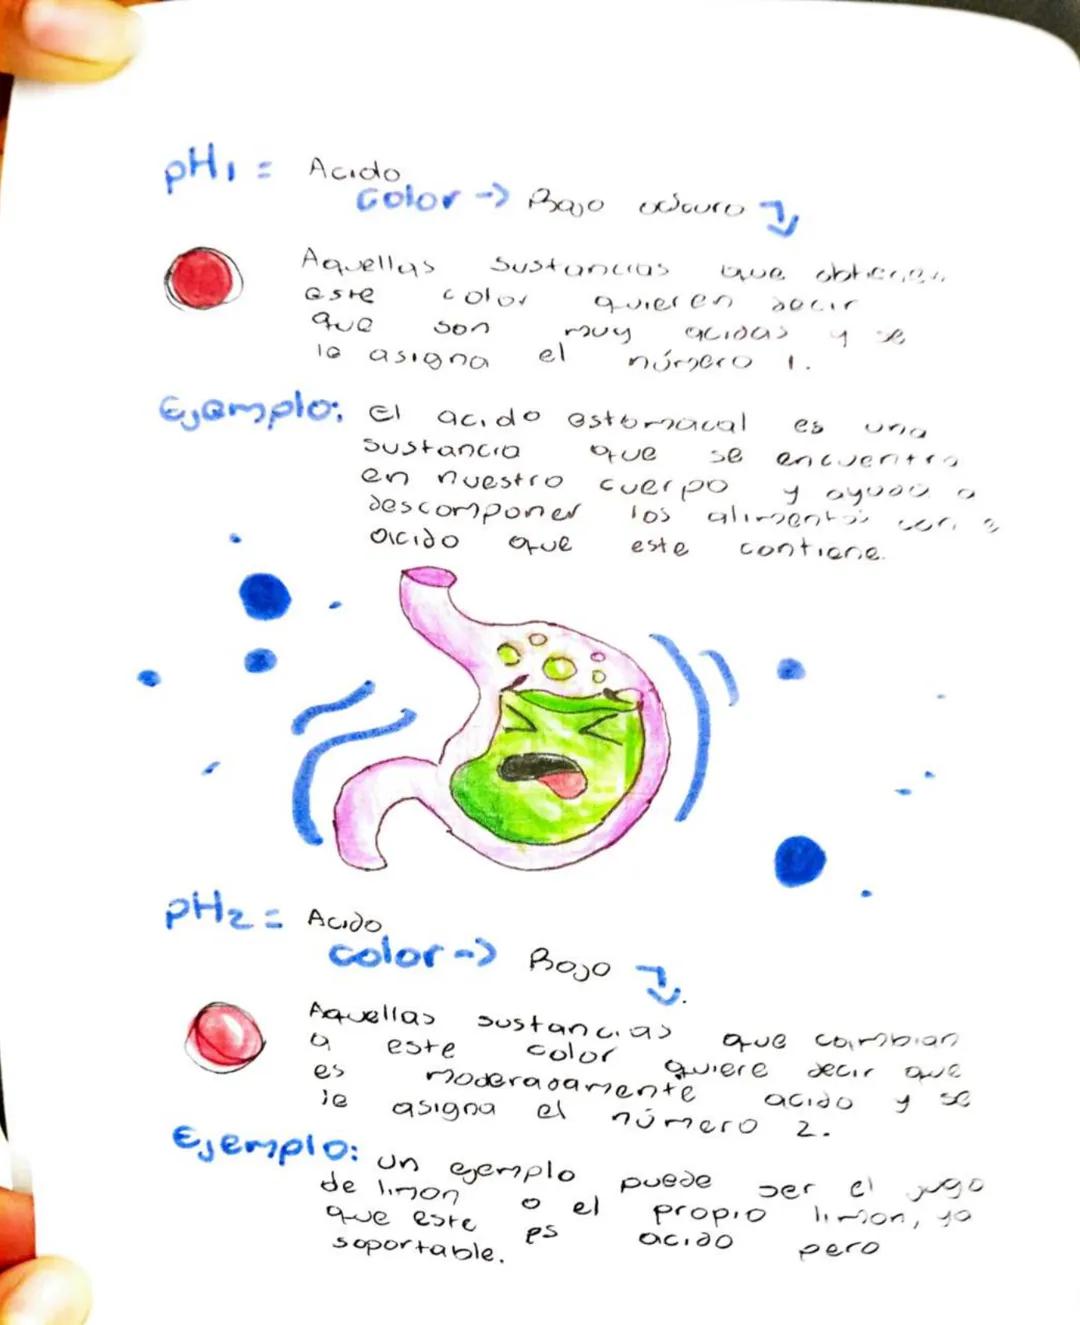 pH1 = Acido
color -> Rojo oscuro
Aquellas sustancias que obtienen
este color quieren decir
que son muy acidas y se
le asigna el número 1.
Ejemplo: El acido estomacal es una
sustancia que se encuentra
en nuestro cuerpo y ayuda a
descomponer los alimentos con
acido que este contiene.
pH2 = Acido
color -> Rojo
Aquellas sustancias que cambian
a este color quiere decir que
es moderadamente acido y se
le asigna el número 2.
Ejemplo: un ejemplo puede ser el jugo
de limon o el propio limon, ya
que este es acido pero
soportable.